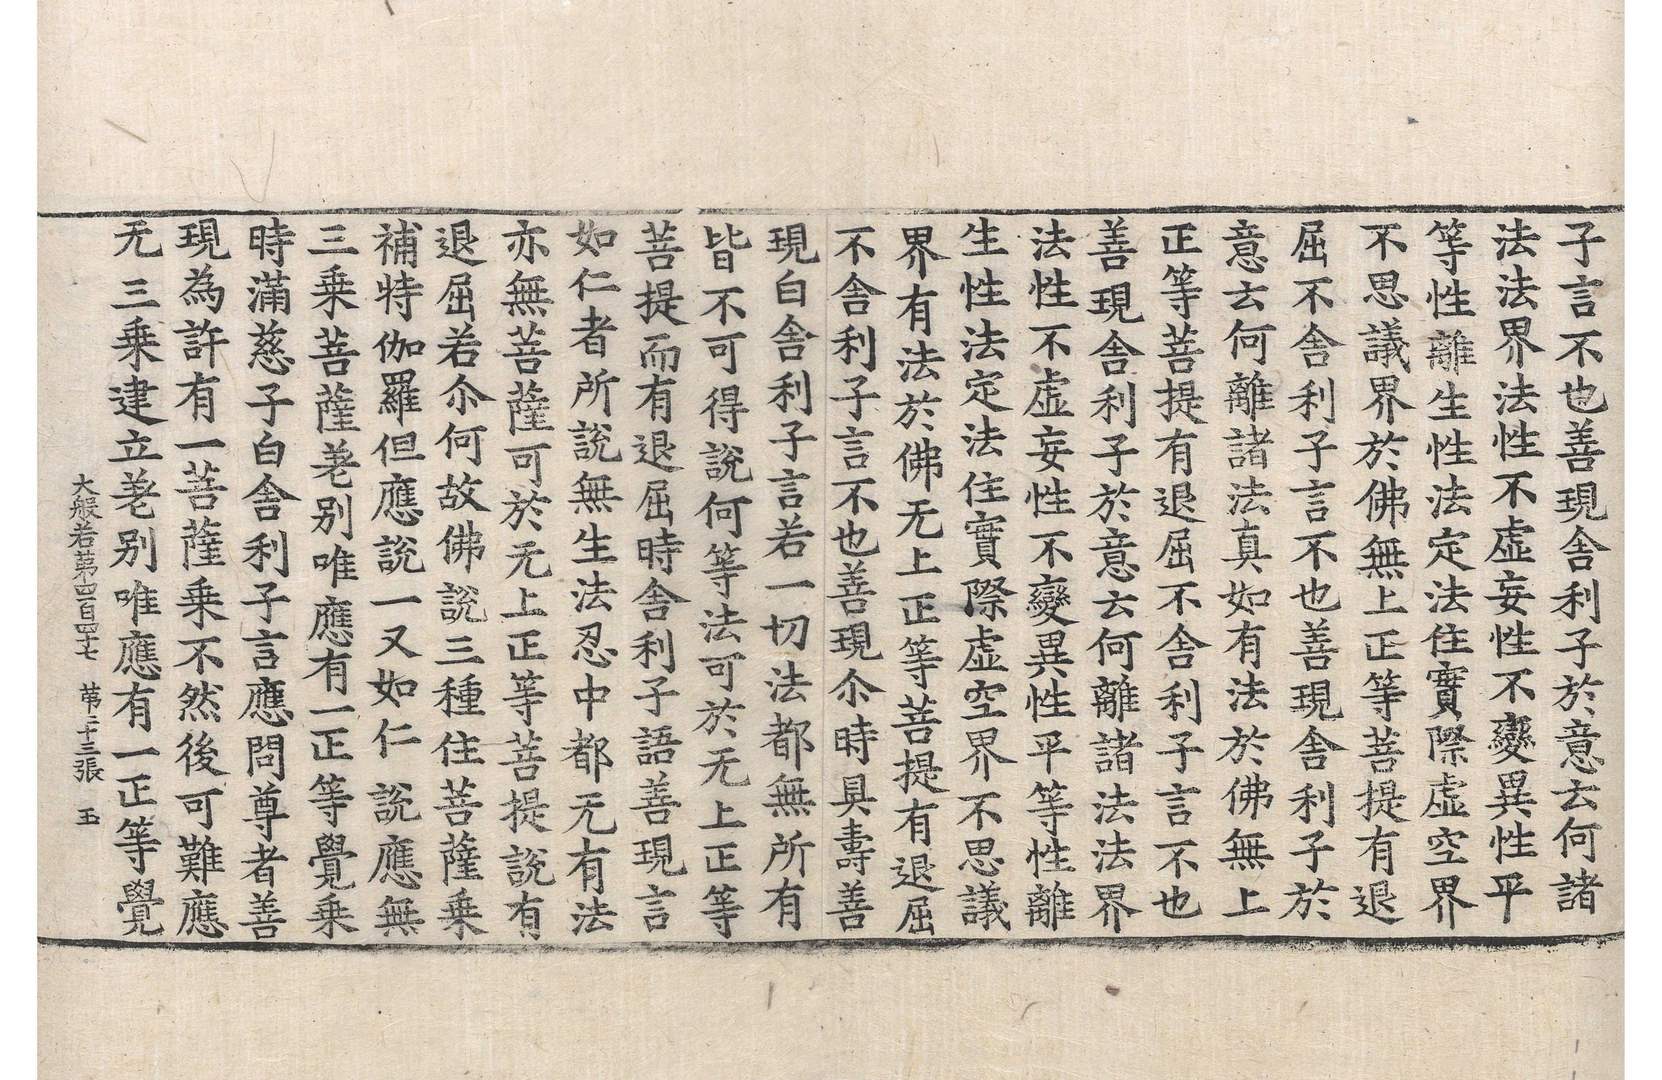 子言不也善現舍利子於意云何諸
法法界法性不虛妄性不變異性平
等性離生性法定法住實際虛空界
不思議界於佛無上正等菩提有退
屈不舍利子言不也善現舍利子於
意云何離諸法真如有法於佛無上
正等菩提有退屈不舍利子言不也
善現舍利子於意云何離諸法法界
法性不虛妄性不變異性平等性離
生性法定法住實際虛空界不思議
界有法於佛无上正等菩提有退屈
不舍利子言不也善現尒時具壽善
現白舍利子言若一切法都無所有
皆不可得說何等法可於无上正等
菩提而有退屈時舍利子語善現言
如仁者所說無生法忍中都无有法
亦無菩薩可於无上正等菩提說有
退屈若尒何故佛說三種住菩薩乘
補特伽羅但應說一又如仁說應無
三乘菩薩差别唯應有一正等覺乘
時滿慈子白舍利子言應問尊者善
現為許有一菩薩乘不然後可難應
无三乘建立差别唯應有一正等覺
大般若第四百四十七 第二十三張 玉